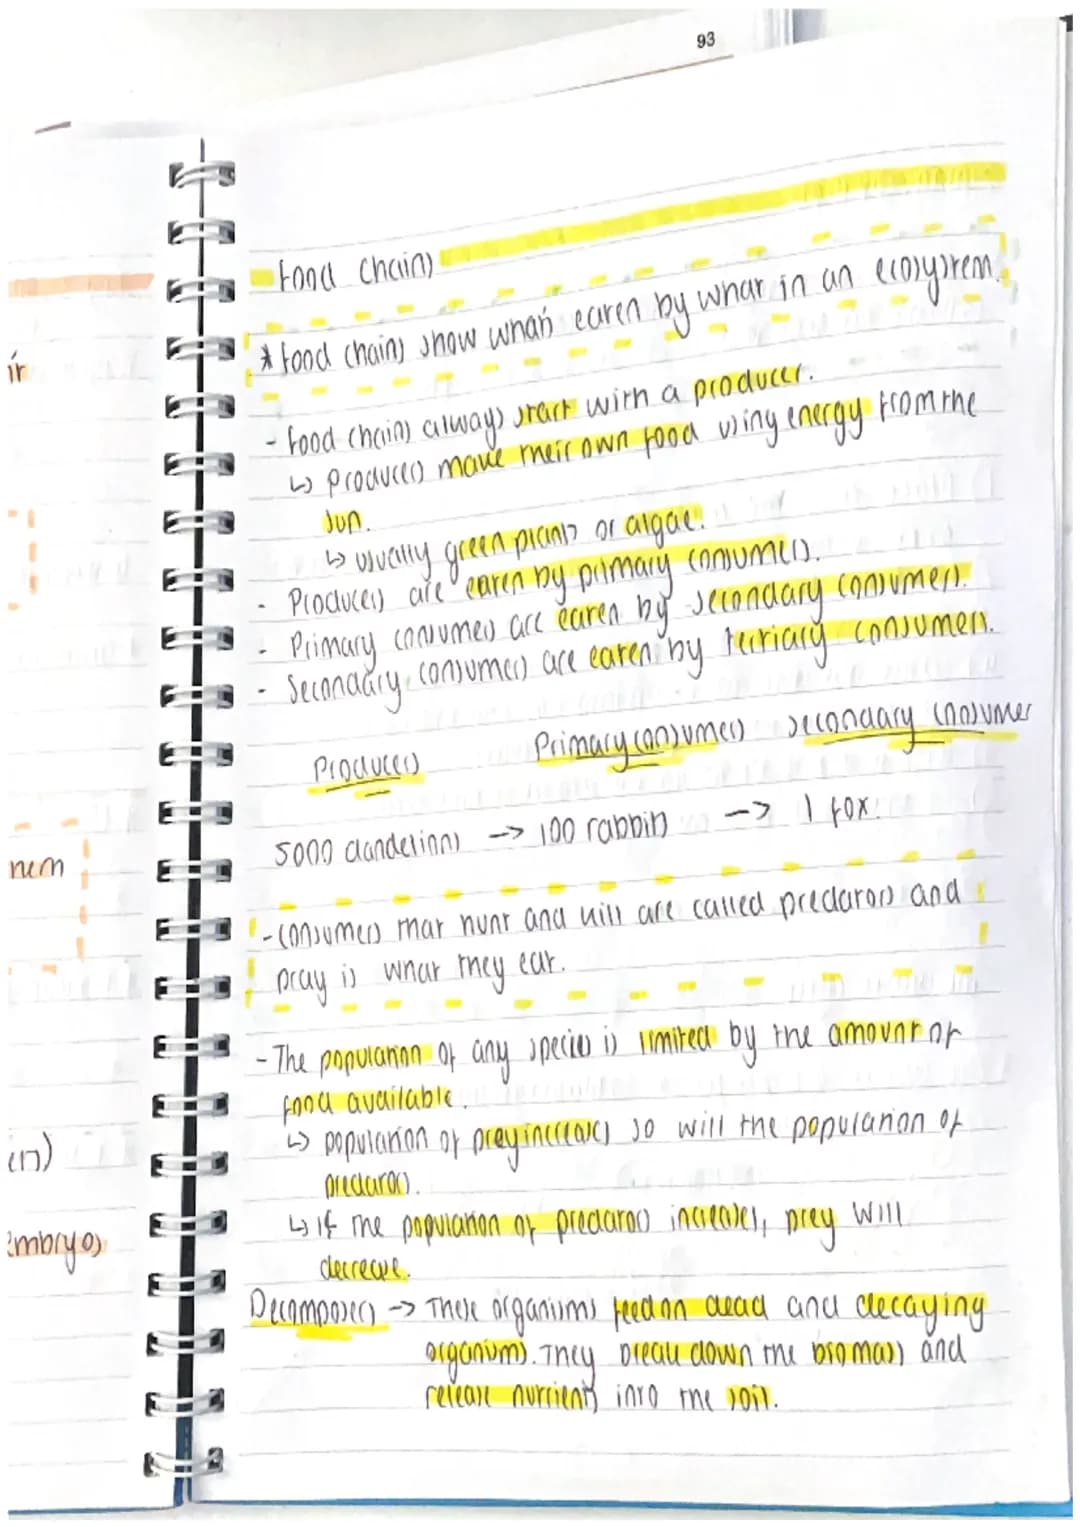 93
Food Chains
* Food chains show what's eaten by what in an ecosystem.
- Food chains always start with a producer.
↳ Producers make their own food using energy from the
sun.
↳ usually green plants or algae.
- Producers are eaten by primary consumers.
- Primary consumers are eaten by secondary consumers.
- Secondary consumers are eaten by tertiary consumers.
Producers Primary consumers secondary consumer
5000 dandelions -> 100 rabbits -> 1 fox.
- consumers that hunt and kill are called predators and
pray is what they eat.
- The population of any species is limited by the amount of
food available.
↳ population of prey increases so will the population of
predators.
↳ if the population of predators increases, prey will
decrease.
Decomposers -> These organisms feed on dead and decaying
organisms. They break down the biomass and
release nutrients into the soil.
ir
nem
en)
embryos